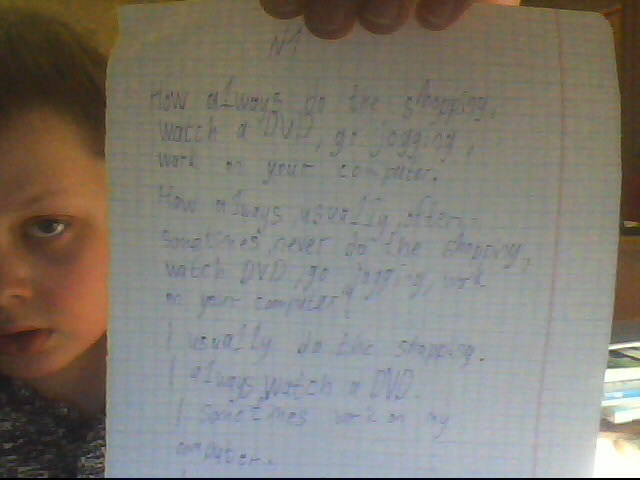 N1
How always do the shopping,
watch a DVD, go jogging,
work on your computer.
How always usually, often,
sometimes, never do the shopping,
watch DVD, go jogging, work
on your computer?
I usually do the shopping.
I always watch a DVD.
I sometimes work on my
computer.